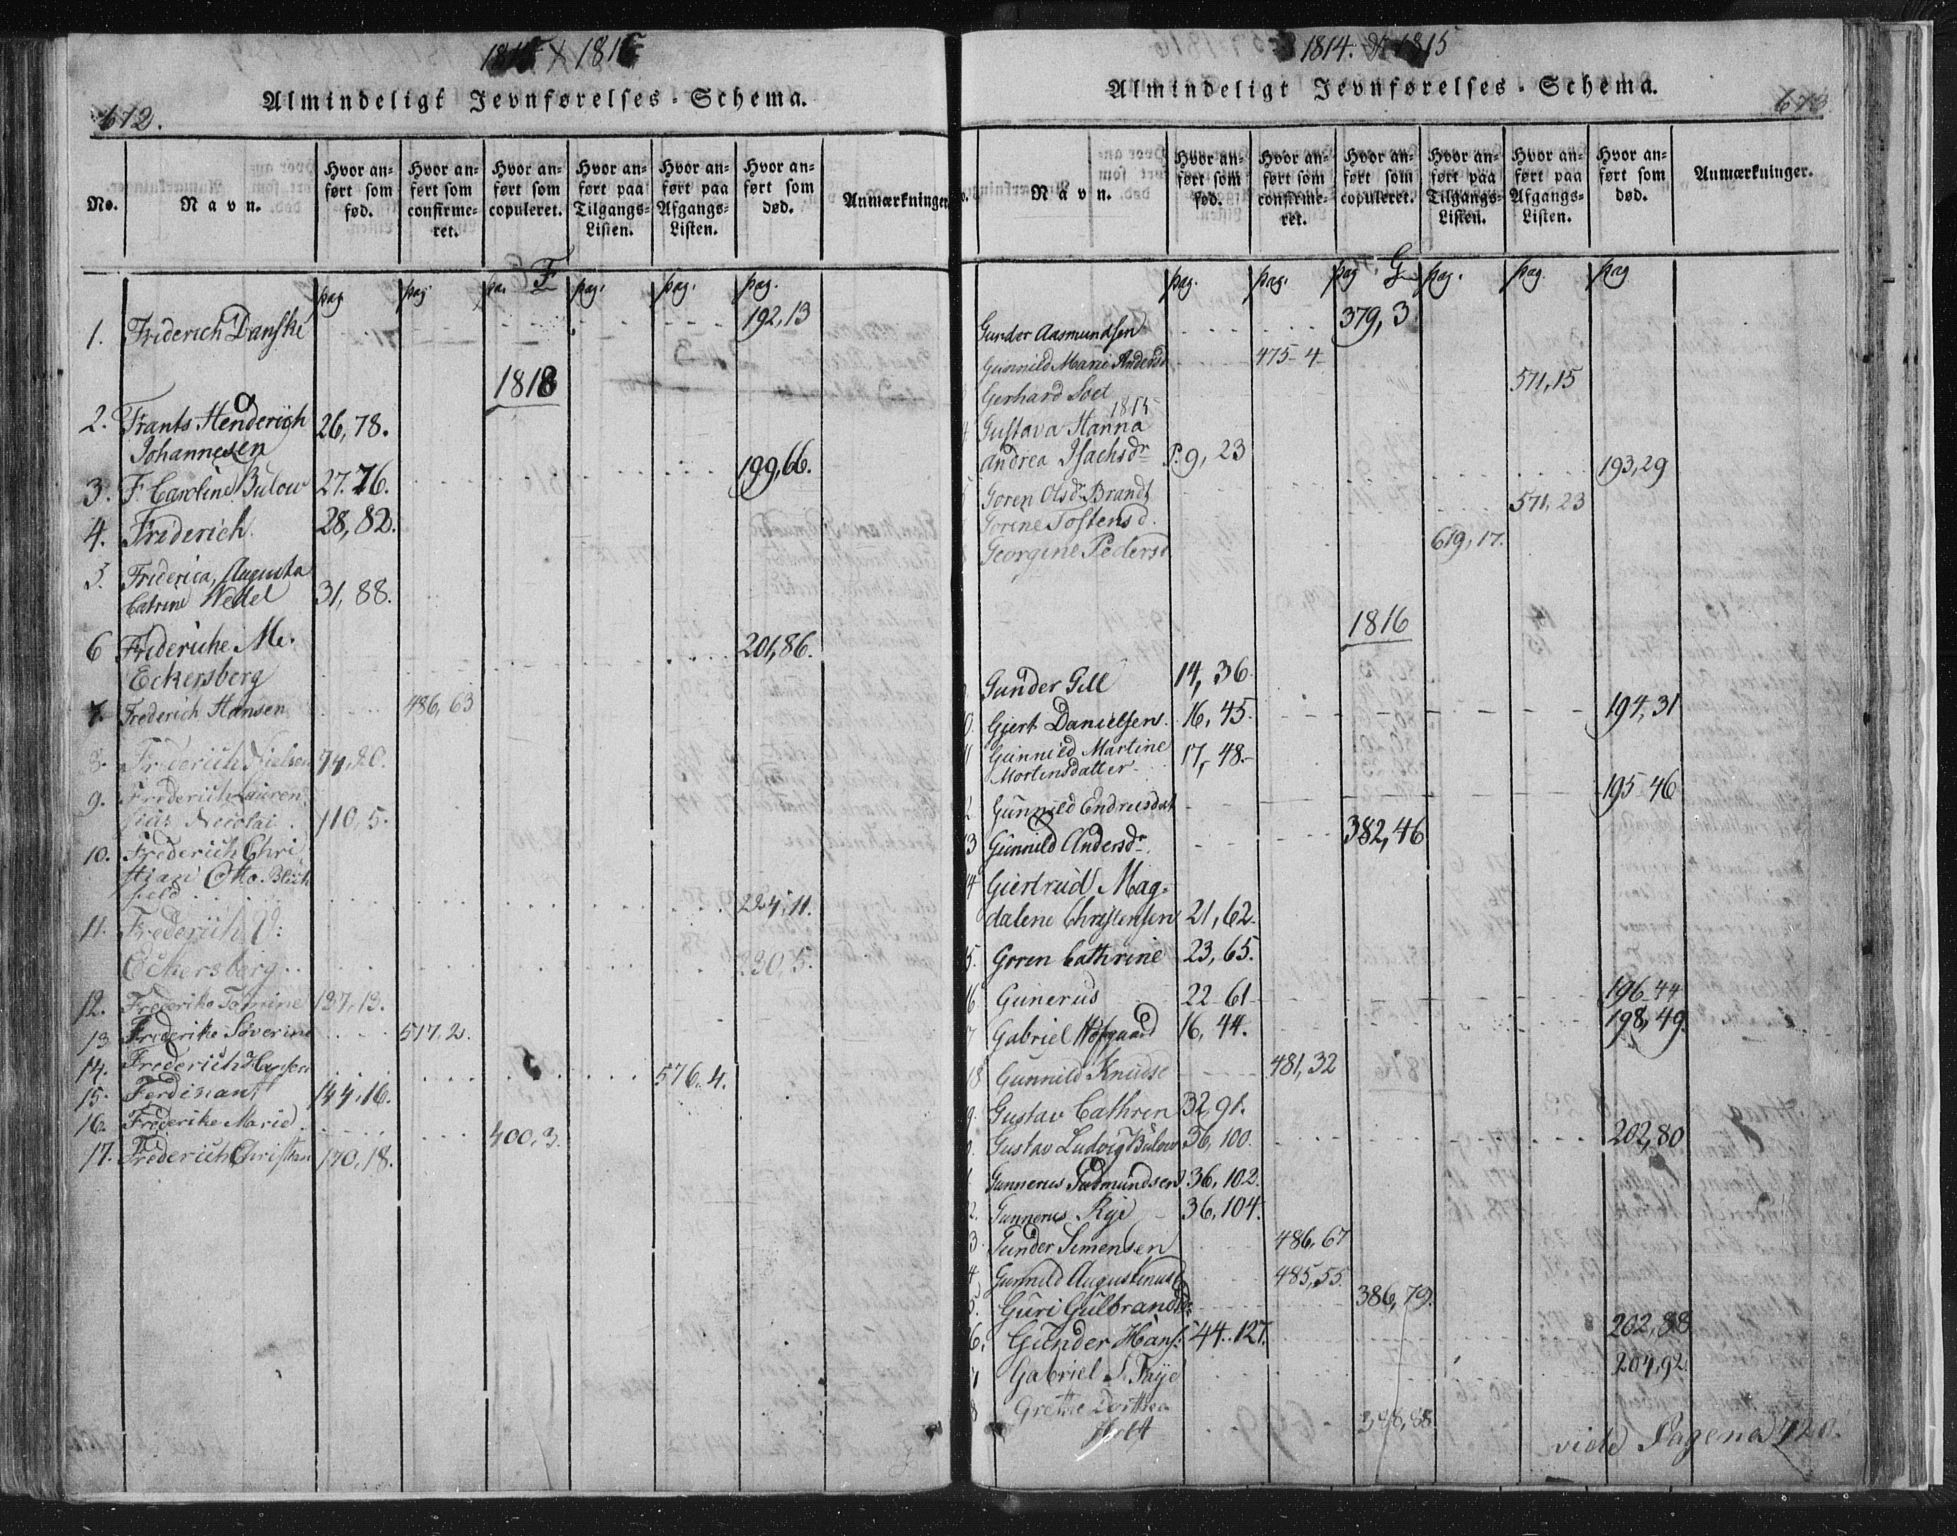 1815 & 1816
Almindeligt Jevnførelses-Schema.
612.
No.
Navn.
Hvor anført som fød.
Hvor anført som confirmeret.
Hvor anført som copuleret.
Hvor anført paa Tilgangs-Listen.
Hvor anført paa Afgangs-Listen.
Hvor anført som død.
Anmærkninger
F
pag. pag. pag. pag. pag. pag.
1. Friderich Danske 192,13
1818
2. Frants Henderich
Johannesen 26,78.
3. F. Caroline Bulow 27.76. 199,66.
4. Friderich 28,82.
5. Friderica, Augusta
Catrine Wedel 31,88.
6 Frideriche M.
Eckersberg 201,86.
7. Frederich Hansen 486,63
8. Friderich Nielsen 74,20.
9. Frederich Lauren-
tius Nicolai 110,5.
10. Frederich Chri
stian Otto Blich
feld 224,11.
11. Frederich
Eckersberg 230,5.
12. Frederike Tomine 137,13.
13 Frederike Severine 517,2.
14. Frederich Hansen 576.4.
15. Ferdinant 144,16.
16. Frederike Marie 400,3.
17. Frederich Christian 170,18.
1814. & 1815
Almindeligt Jevnførelses-Schema.
673
Navn.
Hvor anført som fød.
Hvor anført som confirmeret.
Hvor anført som copuleret.
Hvor anført paa Tilgangs-Listen.
Hvor anført paa Afgangs-Listen.
Hvor anført som død.
Anmærkninger.
G
pag. pag. pag. pag. pag. pag
Gunder Aasmundsen 379,3
Gunnild Marie Andersd 475-4
Gerhard Soet 571,15
1815
4 Gustava Hanna
Andrea Isachsdr P. 9, 23 193,29
5 Goren Olsdr Brandt 571,23
Gorine Tostensd.
Georgine Pedersd 619,17.
1816
Gunder Gill 14, 36
0. Giert Danielsen 16, 45. 194,31
Gunnild Martine
Mortensdatter 17, 48.
2 Gunnild Endresdat 195-46
3 Gunnild Andersdr 382,46
4 Giertrud Mag-
dalene Christensen 21,62.
5. Goren Cathrine 23,65.
6 Gunerus 22-61 196-44
7 Gabriel Hofgaard 16, 44. 198,49.
18 Gunnild Knudsd 481,32
9. Gustav Cathren 32,91.
Gustav Ludvig Bulow 36,100. 202,80
Gunnerus Gudmundsen 36,102.
2. Gunnerus Rye 36,104.
3 Gunder Simensen 486,67
4 Gunnild Augustinusd 485,55.
5. Guri Gulbrandsd: 386,79.
6. Gunder Hans: 44.127. 202,88
Gabriel S. Faye 204,92
8 Grethe Dorthea
Holt 388,88.
vide Pagena 720.